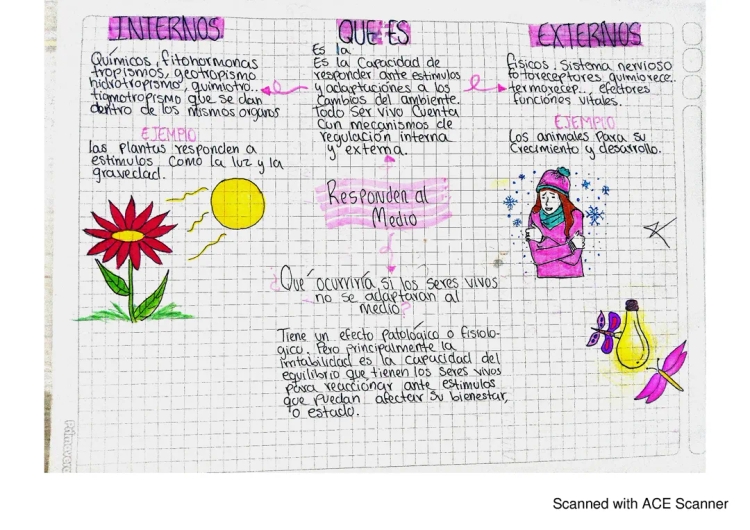 INTERNOS
Químicos, fitohormonas
tropismos, geotropismo
hidrotropismo, quimiotro..
tigmotropismo que se dan
dentro de los mismos organos
EJEMPlO
las plantas responden a
estimulos como la luz y la
gravedad.
QUE ES
Es la
Es la Capacidad de
responder ante estimulos
y adaptaciones a los
Cambios del ambiente.
Todo Ser vivo Cuenta
Con mecanismos de
regulación interna
y externa.
EXTERNOS
físicos. Sistema nervioso
fotoreceptores, quimiorece..
termorecep.., efectores
funciones vitales.
EJEMPLO
Los animales Para su
Crecimiento y desarrollo.
Responden al
Medio
¿Que ocurriría si los seres vivos
no se adaptaran al
medio?
Tiene un efecto patológico o fisiolo-
gico. Pero principalmente la
irritabilidad es la capacidad del
equilibrio que tienen los seres vivos
para reaccionar ante estimulos
que Puedan afectar su bienestar,
o estado.
Primavera
Scanned with ACE Scanner